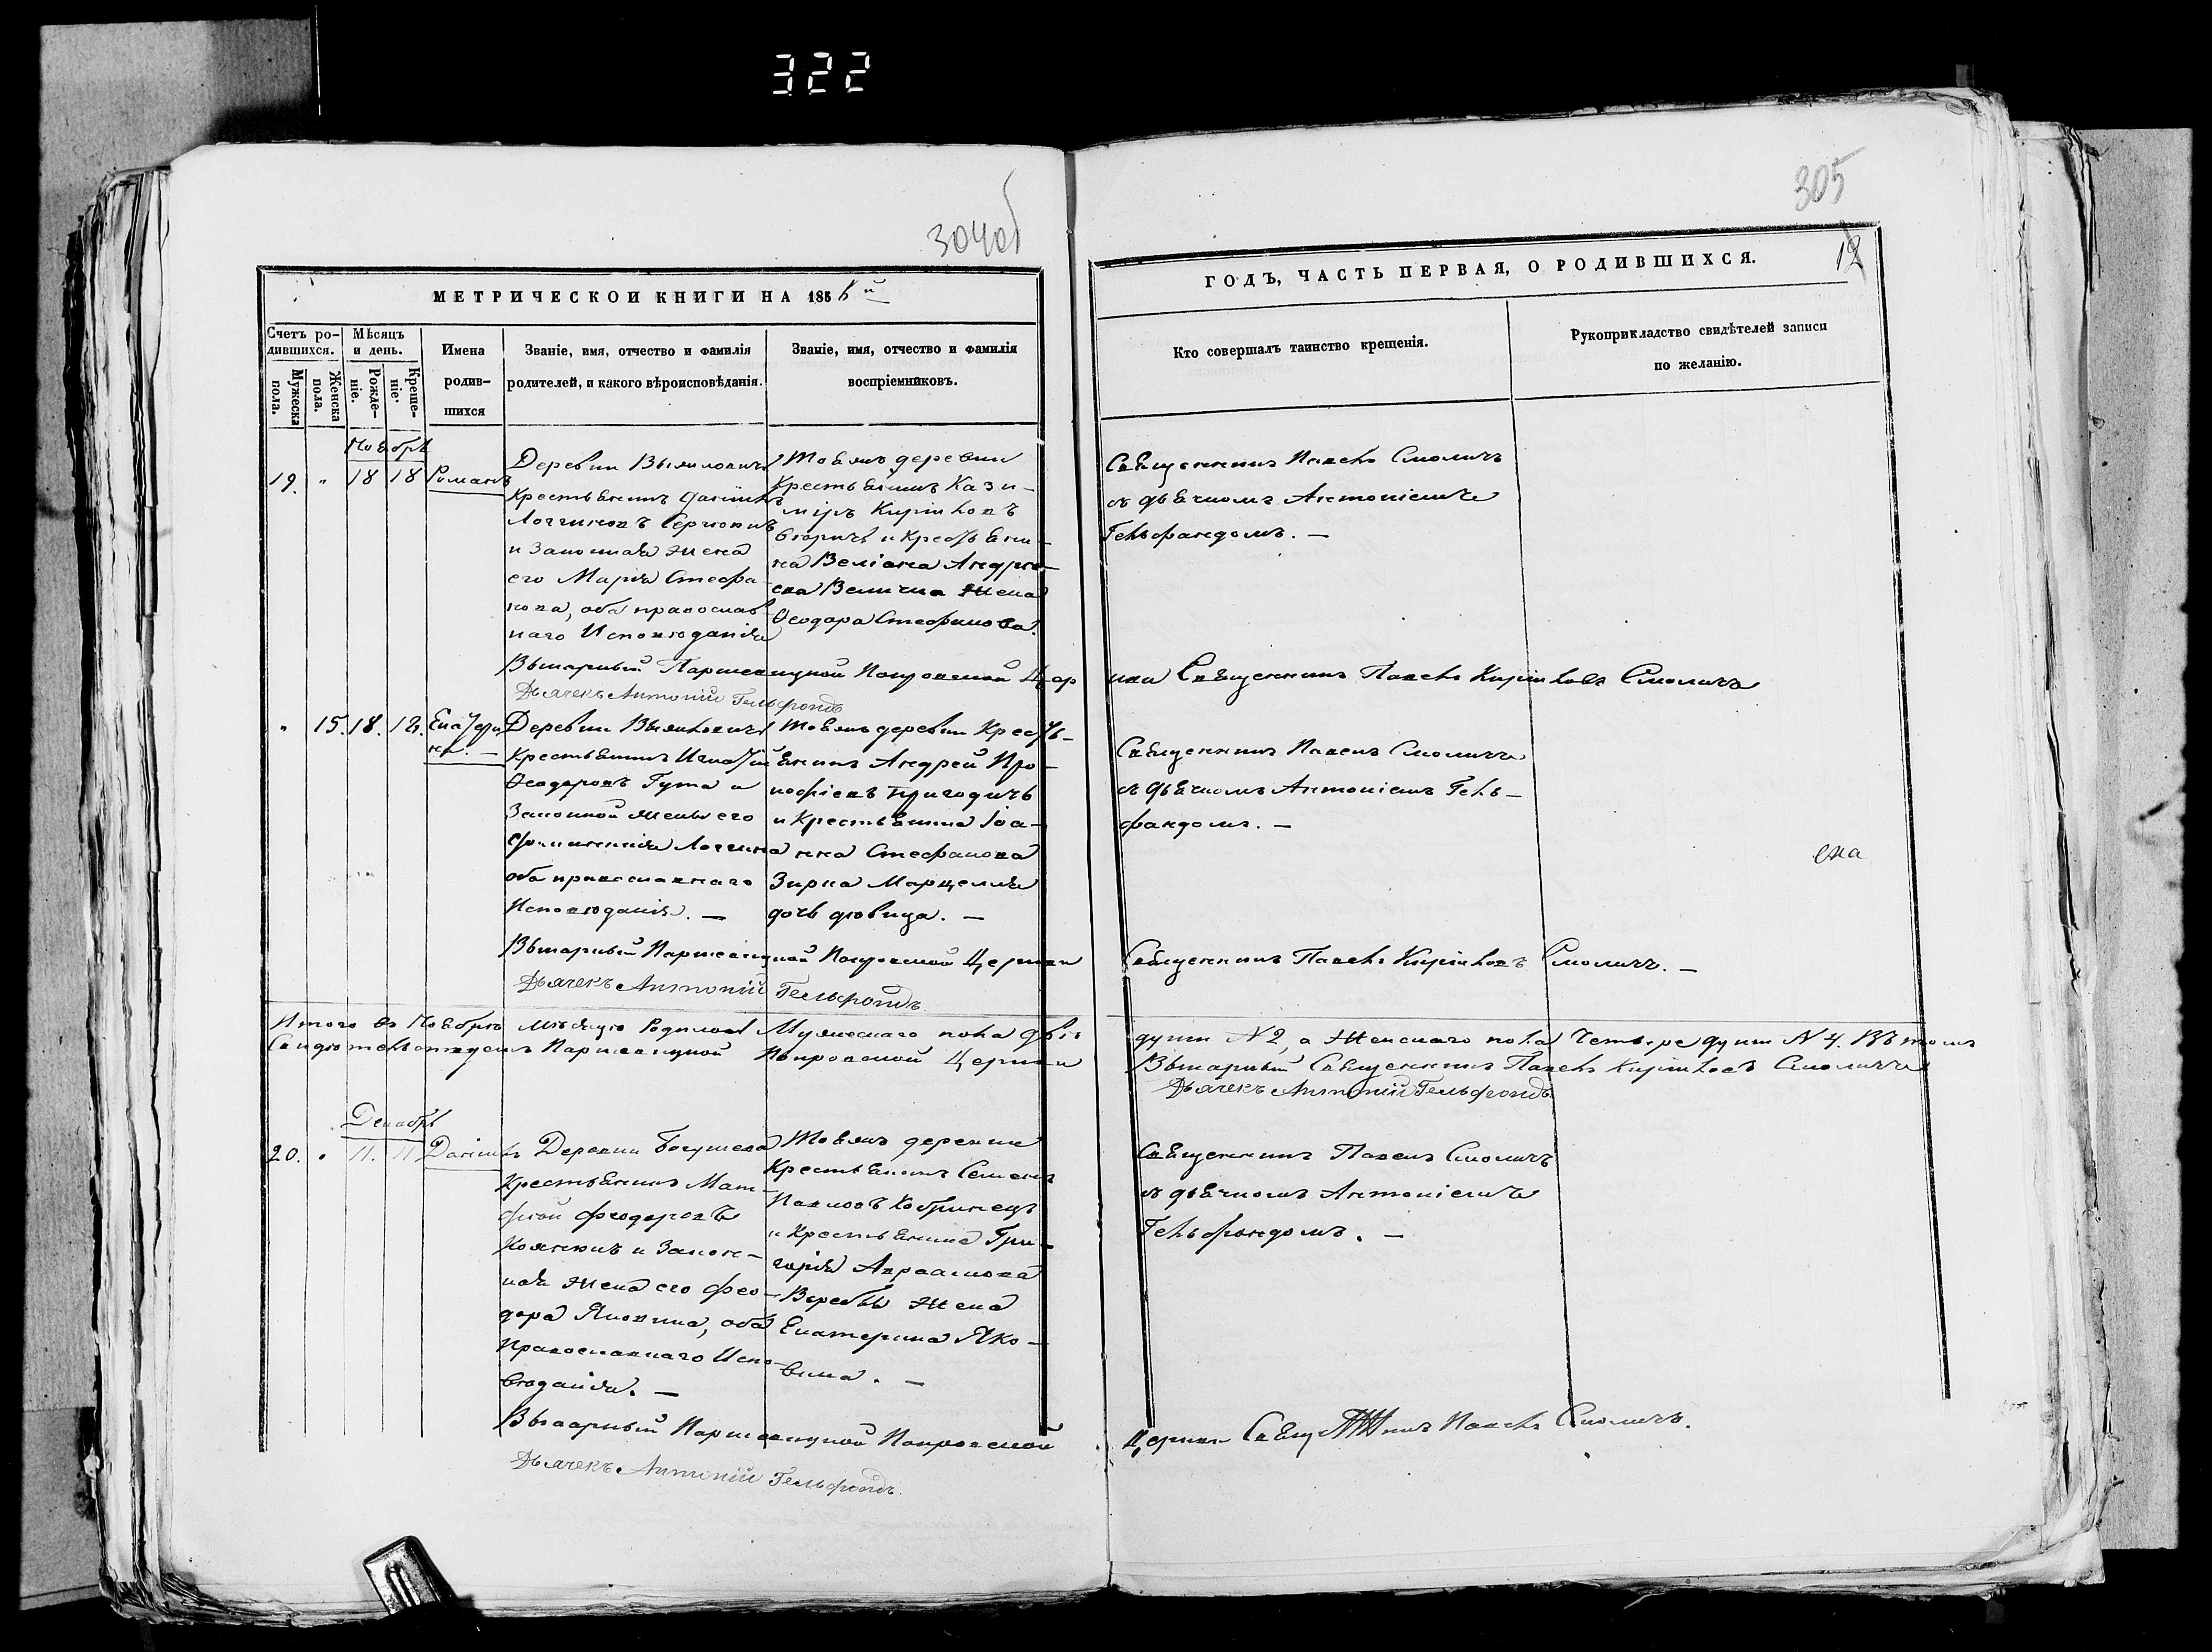 322
304об
305
МЕТРИЧЕСКОИ КНИГИ НА 185
ГОДЪ, ЧАСТЬ ПЕРВАЯ, О РОДИВШИХСЯ.
12
Счетъ ро-
дившихся.
Мужеска
пола.
Женска
пола.
Мѣсяцъ
и день.
Рожде-
ніе.
Креще-
ніе.
Имена
родив-
шихся
Званіе, имя, отчество и фамилія
родителей, и какого вѣроисповѣданія.
Званіе, имя, отчество и фамилія
воспріемниковъ.
Кто совершалъ таинство крещенія.
Рукоприкладство свидѣтелей записи
по желанію.
Ноябрь
19. " 18 18 Романъ
Деревни
Крестьянинъ Даніилъ
Логгиновъ
и Законная жена
его Марія Стефа-
нова, оба православ
наго Исповѣданія
Тоя же деревни
Крестьянинъ Кази-
міръ Кириловъ
и Крестьян-
ка
жена
Ѳеодора Стефанова.
Священникъ Павелъ Смоличъ
съ дьячкомъ Антоніемъ
Гельфандомъ. —
Покровской Цер
кви Священникъ Павелъ Кириловъ Смоличъ
Дьячекъ Антоній Гельфондъ
" 15. 18. 18. Екатери
на. —
Деревни
Крестьянинъ Игнатій
Ѳеодоровъ Гута и
Законной жены его
оба православнаго
Исповѣданія. —
Тоя же деревни Кресть-
янинъ Андрей Про-
кофіевъ Пригодичъ
и Крестьянка Іоа-
нна Стефанова
Зирка
дочь дѣвица. —
Священникъ Павелъ Смоличъ
съ Дьячкомъ Антоніемъ Гель-
фандомъ. —
ена
Покровской Церкви
Священникъ Павелъ Кириловъ Смоличъ. —
Дьячекъ Антоній Гельфондъ
Итого въ Ноябрѣ мѣсяцѣ Родилось Мужескаго пола двѣ
души N 2, а Женскаго пола Четыре души N 4. Въ томъ
Свидѣтельствуемъ Покровской Церкви
Священникъ Павелъ Кириловъ Смоличъ
Дьячекъ Антоній Гельфондъ
Декабрь
20. " 11. 11 Даніилъ
Деревни Богушева
Крестьянинъ Мат-
фей Феодоровъ
и Закон-
ная жена его Фео-
дора Яковина, оба
Православнаго Испо-
вѣданія. —
Тоя же деревни
Крестьянинъ Семенъ
Павловъ Кобринецъ
и Крестьянина Гри-
горія Авраамова
жена
Екатерина Яко-
вина. —
Священникъ Павелъ Смоличъ
съ дьячкомъ Антоніемъ
Гельфандомъ. —
Покровской
Церкви Священникъ Павелъ Смоличъ.
Дьячекъ Антоній Гельфондъ.